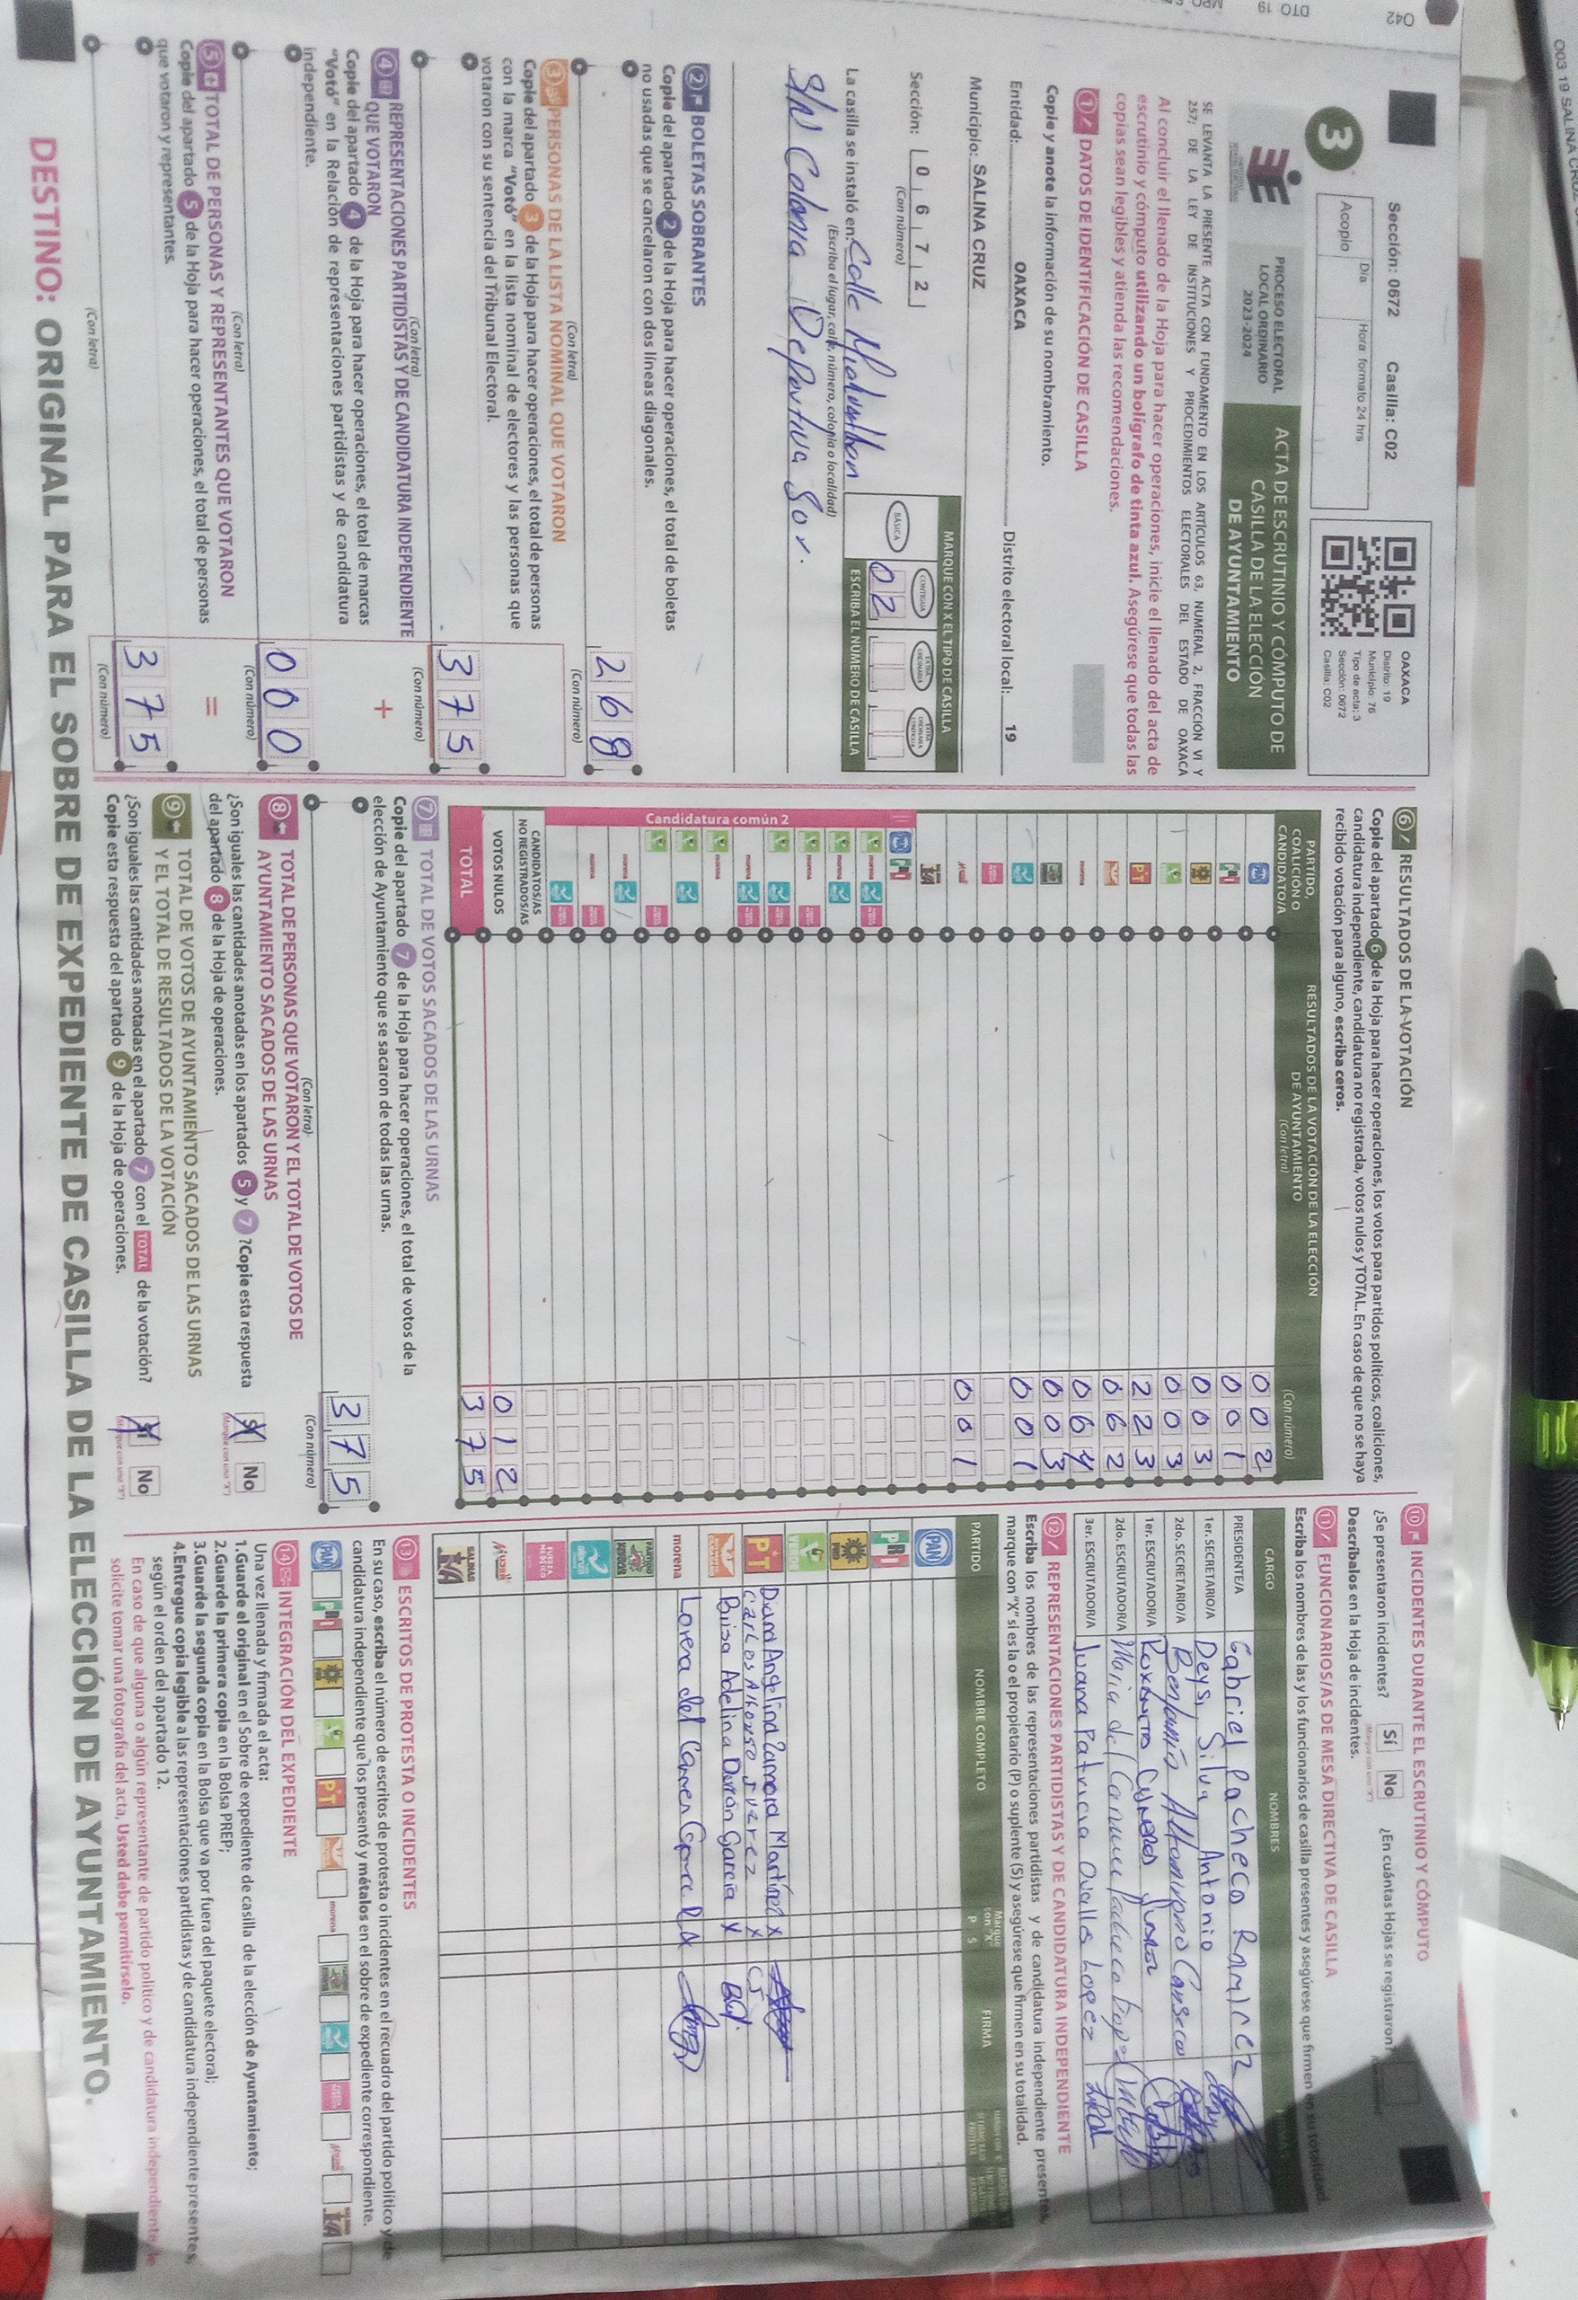 003 19 SALINA CRUZ
042
DTO 19
Sección: 0672 Casilla: C02
3
Acopio
Día
Hora formato 24 hrs
OAXACA
Distrito: 19
Municipio: 76
Tipo de acta: 3
Sección: 0672
Casilla: C02
PROCESO ELECTORAL
LOCAL ORDINARIO
2023-2024
ACTA DE ESCRUTINIO Y CÓMPUTO DE
CASILLA DE LA ELECCIÓN
DE AYUNTAMIENTO
SE LEVANTA LA PRESENTE ACTA CON FUNDAMENTO EN LOS ARTÍCULOS 63, NUMERAL 2, FRACCIÓN VI Y
257; DE LA LEY DE INSTITUCIONES Y PROCEDIMIENTOS ELECTORALES DEL ESTADO DE OAXACA
Al concluir el llenado de la Hoja para hacer operaciones, inicie el llenado del acta de
escrutinio y cómputo utilizando un bolígrafo de tinta azul. Asegúrese que todas las
copias sean legibles y atienda las recomendaciones.
1 DATOS DE IDENTIFICACIÓN DE CASILLA
Copie y anote la información de su nombramiento.
Entidad: OAXACA Distrito electoral local: 19
Municipio: SALINA CRUZ
Sección: 0 6 7 2
(Con número)
MARQUE CON X EL TIPO DE CASILLA
BÁSICA CONTIGUA EXTRAORDINARIA
02
ESCRIBA EL NÚMERO DE CASILLA
La casilla se instaló en: Calle
(Escriba el lugar, calle, número, colonia o localidad)
S/N Colonia Deportiva Sor.
2 BOLETAS SOBRANTES
Copie del apartado 2 de la Hoja para hacer operaciones, el total de boletas
no usadas que se cancelaron con dos líneas diagonales.
268
(Con letra) (Con número)
3 PERSONAS DE LA LISTA NOMINAL QUE VOTARON
Copie del apartado 3 de la Hoja para hacer operaciones, el total de personas
con la marca "Votó" en la lista nominal de electores y las personas que
votaron con su sentencia del Tribunal Electoral.
375
(Con letra) (Con número)
4 REPRESENTACIONES PARTIDISTAS Y DE CANDIDATURA INDEPENDIENTE
QUE VOTARON
+
Copie del apartado 4 de la Hoja para hacer operaciones, el total de marcas
"Votó" en la Relación de representaciones partidistas y de candidatura
independiente.
000
(Con letra) (Con número)
5 TOTAL DE PERSONAS Y REPRESENTANTES QUE VOTARON
=
Copie del apartado 5 de la Hoja para hacer operaciones, el total de personas
que votaron y representantes.
375
(Con letra) (Con número)
6 RESULTADOS DE LA VOTACIÓN
Copie del apartado 6 de la Hoja para hacer operaciones, los votos para partidos políticos, coaliciones,
candidatura independiente, candidatura no registrada, votos nulos y TOTAL. En caso de que no se haya
recibido votación para alguno, escriba ceros.
PARTIDO,
COALICIÓN O
CANDIDATO/A
RESULTADOS DE LA VOTACIÓN DE LA ELECCIÓN
DE AYUNTAMIENTO
(Con letra)
(Con número)
002
PRI 001
003
003
PT 223
062
morena 064
003
001
001
Candidatura común 2
CANDIDATOS/AS
NO REGISTRADOS/AS
VOTOS NULOS 012
TOTAL 375
7 TOTAL DE VOTOS SACADOS DE LAS URNAS
Copie del apartado 7 de la Hoja para hacer operaciones, el total de votos de la
elección de Ayuntamiento que se sacaron de todas las urnas.
375
(Con letra) (Con número)
8 TOTAL DE PERSONAS QUE VOTARON Y EL TOTAL DE VOTOS DE
AYUNTAMIENTO SACADOS DE LAS URNAS
¿Son iguales las cantidades anotadas en los apartados 5 y 7? Copie esta respuesta
del apartado 8 de la Hoja de operaciones.
Sí No
9 TOTAL DE VOTOS DE AYUNTAMIENTO SACADOS DE LAS URNAS
Y EL TOTAL DE RESULTADOS DE LA VOTACIÓN
¿Son iguales las cantidades anotadas en el apartado 7 con el TOTAL de la votación?
Copie esta respuesta del apartado 9 de la Hoja de operaciones.
Sí No
10 INCIDENTES DURANTE EL ESCRUTINIO Y CÓMPUTO
¿Se presentaron incidentes? Sí No ¿En cuántas Hojas se registraron?
Descríbalos en la Hoja de incidentes.
11 FUNCIONARIOS/AS DE MESA DIRECTIVA DE CASILLA
Escriba los nombres de las y los funcionarios de casilla presentes y asegúrese que firmen en su totalidad.
CARGO NOMBRES
PRESIDENTE/A Gabriel Pacheco Ramirez
1er. SECRETARIO/A Deysi Silva Antonio
2do. SECRETARIO/A Benjamín Altamirano Canseco
1er. ESCRUTADOR/A
2do. ESCRUTADOR/A Maria del Carmen
3er. ESCRUTADOR/A Juana Patricia Ovalles Lopez
12 REPRESENTACIONES PARTIDISTAS Y DE CANDIDATURA INDEPENDIENTE
Escriba los nombres de las representaciones partidistas y de candidatura independiente presentes,
marque con "X" si es la o el propietario (P) o suplente (S) y asegúrese que firmen en su totalidad.
PARTIDO NOMBRE COMPLETO Marque con "X" P S FIRMA
PAN
PRI
PRD
VERDE
PT Diana Angelina Zamora Martínez X
Carlos Alfonso Juárez X CJ
Brisa Adelina Durán García X
morena Lorena del Carmen
nueva alianza
FUERZA MÉXICO
13 ESCRITOS DE PROTESTA O INCIDENTES
En su caso, escriba el número de escritos de protesta o incidentes en el recuadro del partido político y de
candidatura independiente que los presentó y métalos en el sobre de expediente correspondiente.
PAN PRI PT morena
14 INTEGRACIÓN DEL EXPEDIENTE
Una vez llenada y firmada el acta:
1.Guarde el original en el Sobre de expediente de casilla de la elección de Ayuntamiento;
2.Guarde la primera copia en la Bolsa PREP;
3.Guarde la segunda copia en la Bolsa que va por fuera del paquete electoral;
4.Entregue copia legible a las representaciones partidistas y de candidatura independiente presentes,
según el orden del apartado 12.
En caso de que alguna o algún representante de partido político y de candidatura independiente le
solicite tomar una fotografía del acta, Usted debe permitírselo.
DESTINO: ORIGINAL PARA EL SOBRE DE EXPEDIENTE DE CASILLA DE LA ELECCIÓN DE AYUNTAMIENTO.